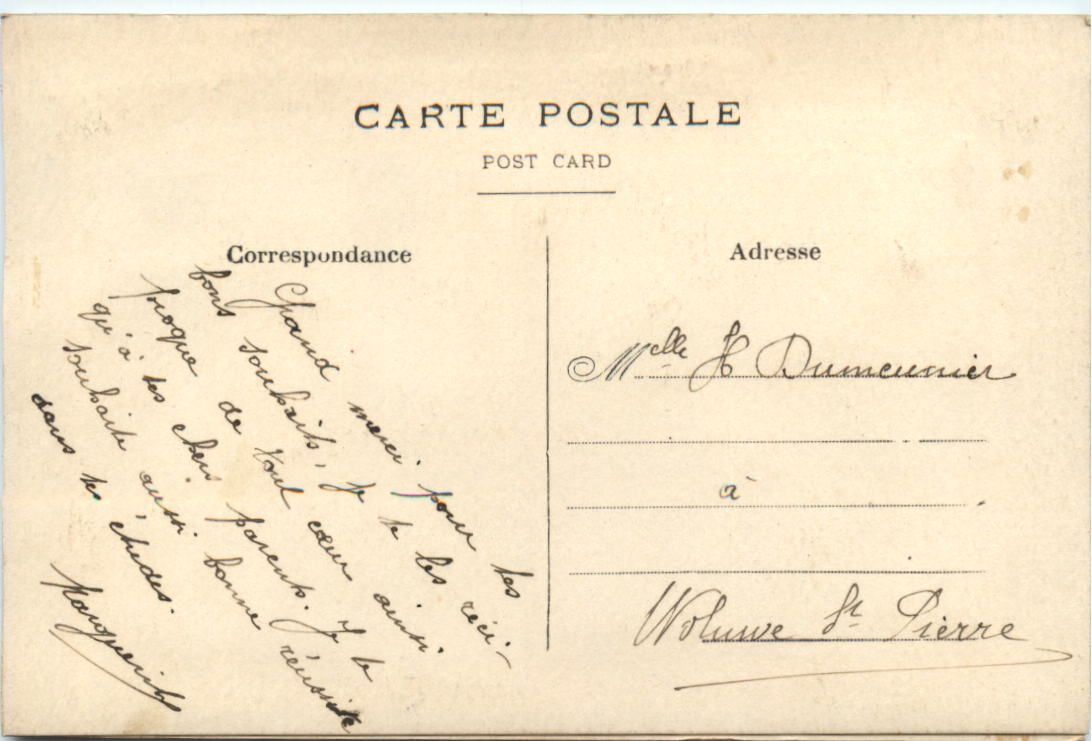 CARTE POSTALE
POST CARD
Correspondance
Grand merci pour tes
bons souhaits, je te les réci-
proque de tout cœur ainsi
qu'à tes chers parents. Je te
souhaite aussi bonne réussite
dans tes études.
Marguerite
Adresse
Melle H Dumeunier
à
Woluwe St Pierre